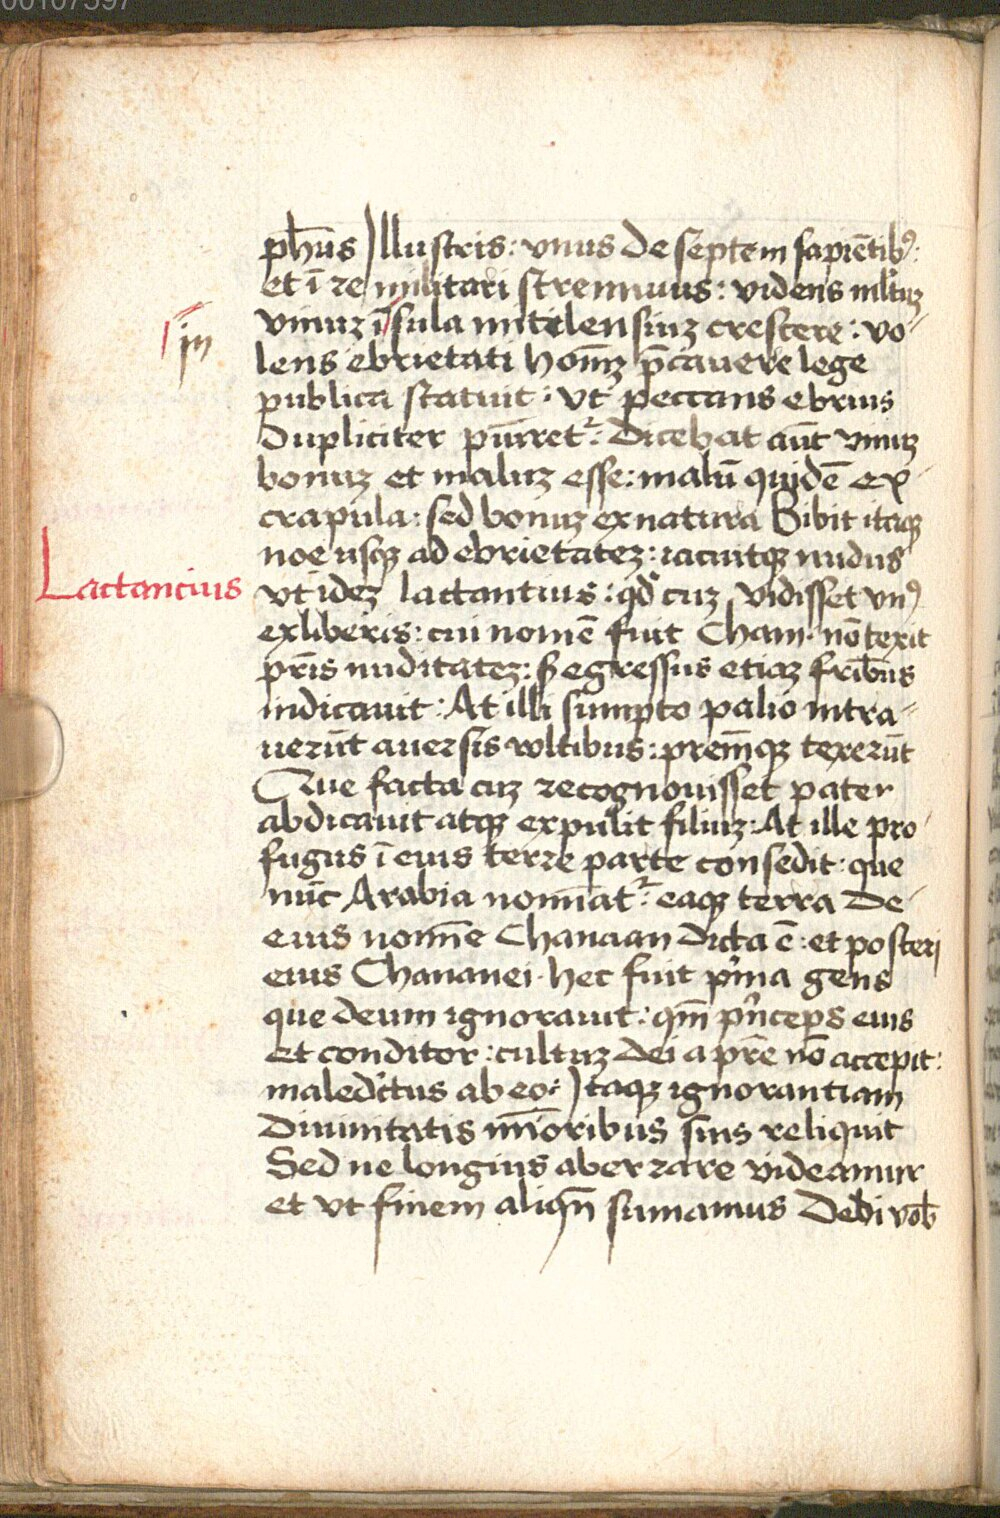 00107397
ph̄us Jllustris: vnus de septem sapiētibꝰ:
et ī re militari strennuus: videns ml̓tuz
in
vinuz ī sula mitelensiuz crescere: vo-
lens ebrietati homīz p̄cauere lege
publica statuit: vt peccans ebrius
dupliciter puniret᷑: Dicebat aūt vinuz
bonuz et maluz esse: malū quidē ex
crapula: sed bonuz ex natura Bibit itaqꝫ
noe usqꝫ ad ebrietatez: iacuitqꝫ nudus
Lactancius
vt idez lactantius: qd cuz vidisset vnꝰ
ex liberis: cui nomē fuit Cham· nō texit
pr̄is nuditatez: sꝫ egressus etiaz frībus
indicauit: At illi sumpto palio intra-
uerūt auersis vultibus: prem̄qꝫ texerūt
Que facta cuz recognouisset pater
abdicauit atqꝫ expulit filiuz: At ille pro-
fugus ī eius terre parte consedit: que
nūc Arabia nominat᷑: eaqꝫ terra de
eius nomīe Chanaan dicta ē: et posteri
eius Chananei· hec fuit p̓ma gens
que deum ignorauit: qm̄ p̓nceps eius
et conditor: cultuz dei a pr̄e nō accepit:
maled̓ctus ab eo: Jtaqꝫ ignorantiam
diuinitatis mīoribus suis reliquit
Sed ne longius aberrare videamur
et vt finem aliqn̄ sumamus Debi vob̄